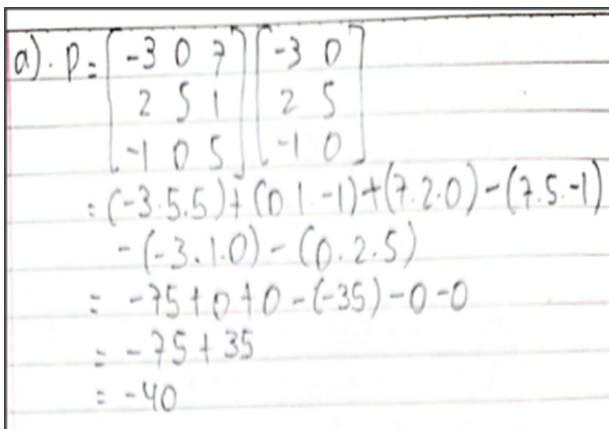 a). P = [-3 0 7] [-3 0]
[2 5 1] [2 5]
[-1 0 5] [-1 0]
= (-3.5.5) + (0 1. -1) + (7.2.0) - (7.5.-1)
- (-3.1.0) - (0.2.5)
= -75 + 0 + 0 - (-35) - 0 - 0
= -75 + 35
= -40